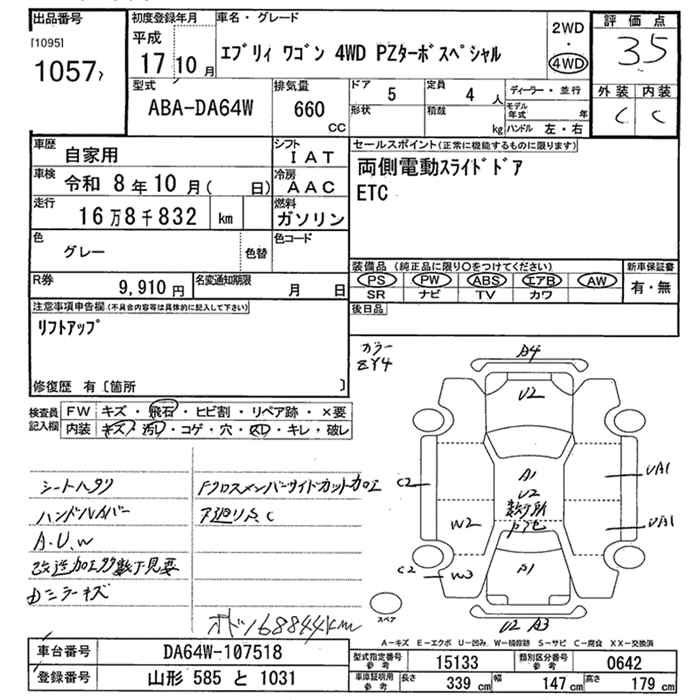 出品番号
[1095]
1057
初度登録年月
平成
17 10 月
車名・グレード
エブリィ ワゴン 4WD PZターボスペシャル
2WD
・
4WD
評価点
3.5
外装 内装
C C
型式
ABA-DA64W
排気量
660
CC
ドア 5
形状
定員 4 人
積載 kg
ディーラー・並行
モデル年式 年
ハンドル 左・右
車歴 自家用
シフト IAT
車検 令和 8年10月( 日)
冷房 AAC
走行 16万8千832 km
燃料 ガソリン
色 グレー 色替
色コード
R券 9,910円
名変通知期限 月 日
セールスポイント(正常に機能するものに限ります)
両側電動スライドドア
ETC
装備品(純正品に限り○をつけてください)
PS PW ABS エアB AW
SR ナビ TV カワ
新車保証書
有・無
後日品
注意事項申告欄(不具合内容等は具体的に記入して下さい)
リフトアップ
修復歴 有〔箇所 〕
検査員記入欄
FW キズ・飛石・ヒビ割・リペア跡・×要
内装 キズ・汚レ・コゲ・穴・スレ・キレ・破レ
シートヘタリ
ハンドルハイバー
A.U.W
改造加工多数了見要
Fクロスメンバーサイドカットカロエ
下廻りS.C
オドバ168844km
カラー
ZY4
A4
U2
A1
U2
C2
W2
UA1
UA1
C2
W3
A1
U2 A3
スペア
A－キズ E－エクボ U－凹み W－補修跡 S－サビ C－腐食 XX－交換済
車台番号 DA64W-107518
登録番号 山形 585 と 1031
型式指定番号 参考 15133
類別区分番号 参考 0642
車庫証明用 参考 長さ 339 cm 幅 147 cm 高さ 179 cm